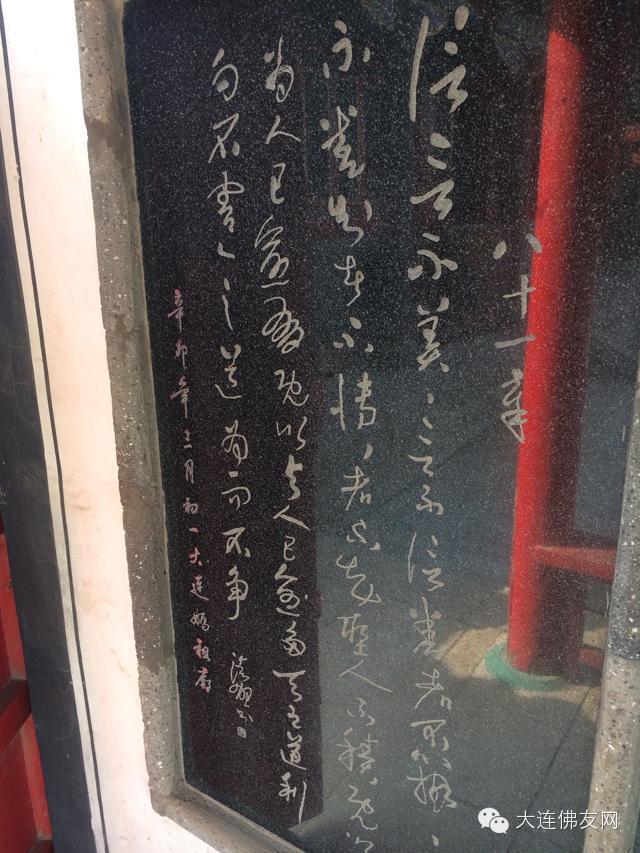 八十一章
信言不美、言不信善者不辯、
不善知者不博、者不知聖人不積既以
為人己愈有既以与人己愈多天之道利
而不害、之道為而不爭
辛卯年三月初一大連祖
大连佛友网